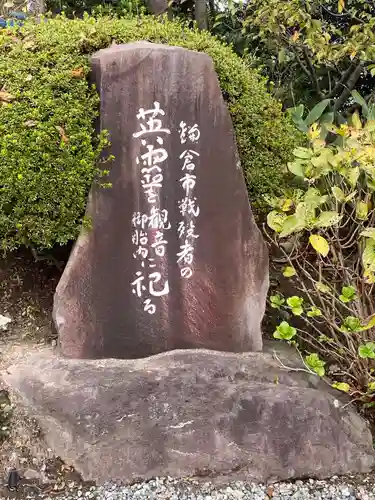 鎌倉市戦歿者の
英霊簿を観音
御胎内に祀る